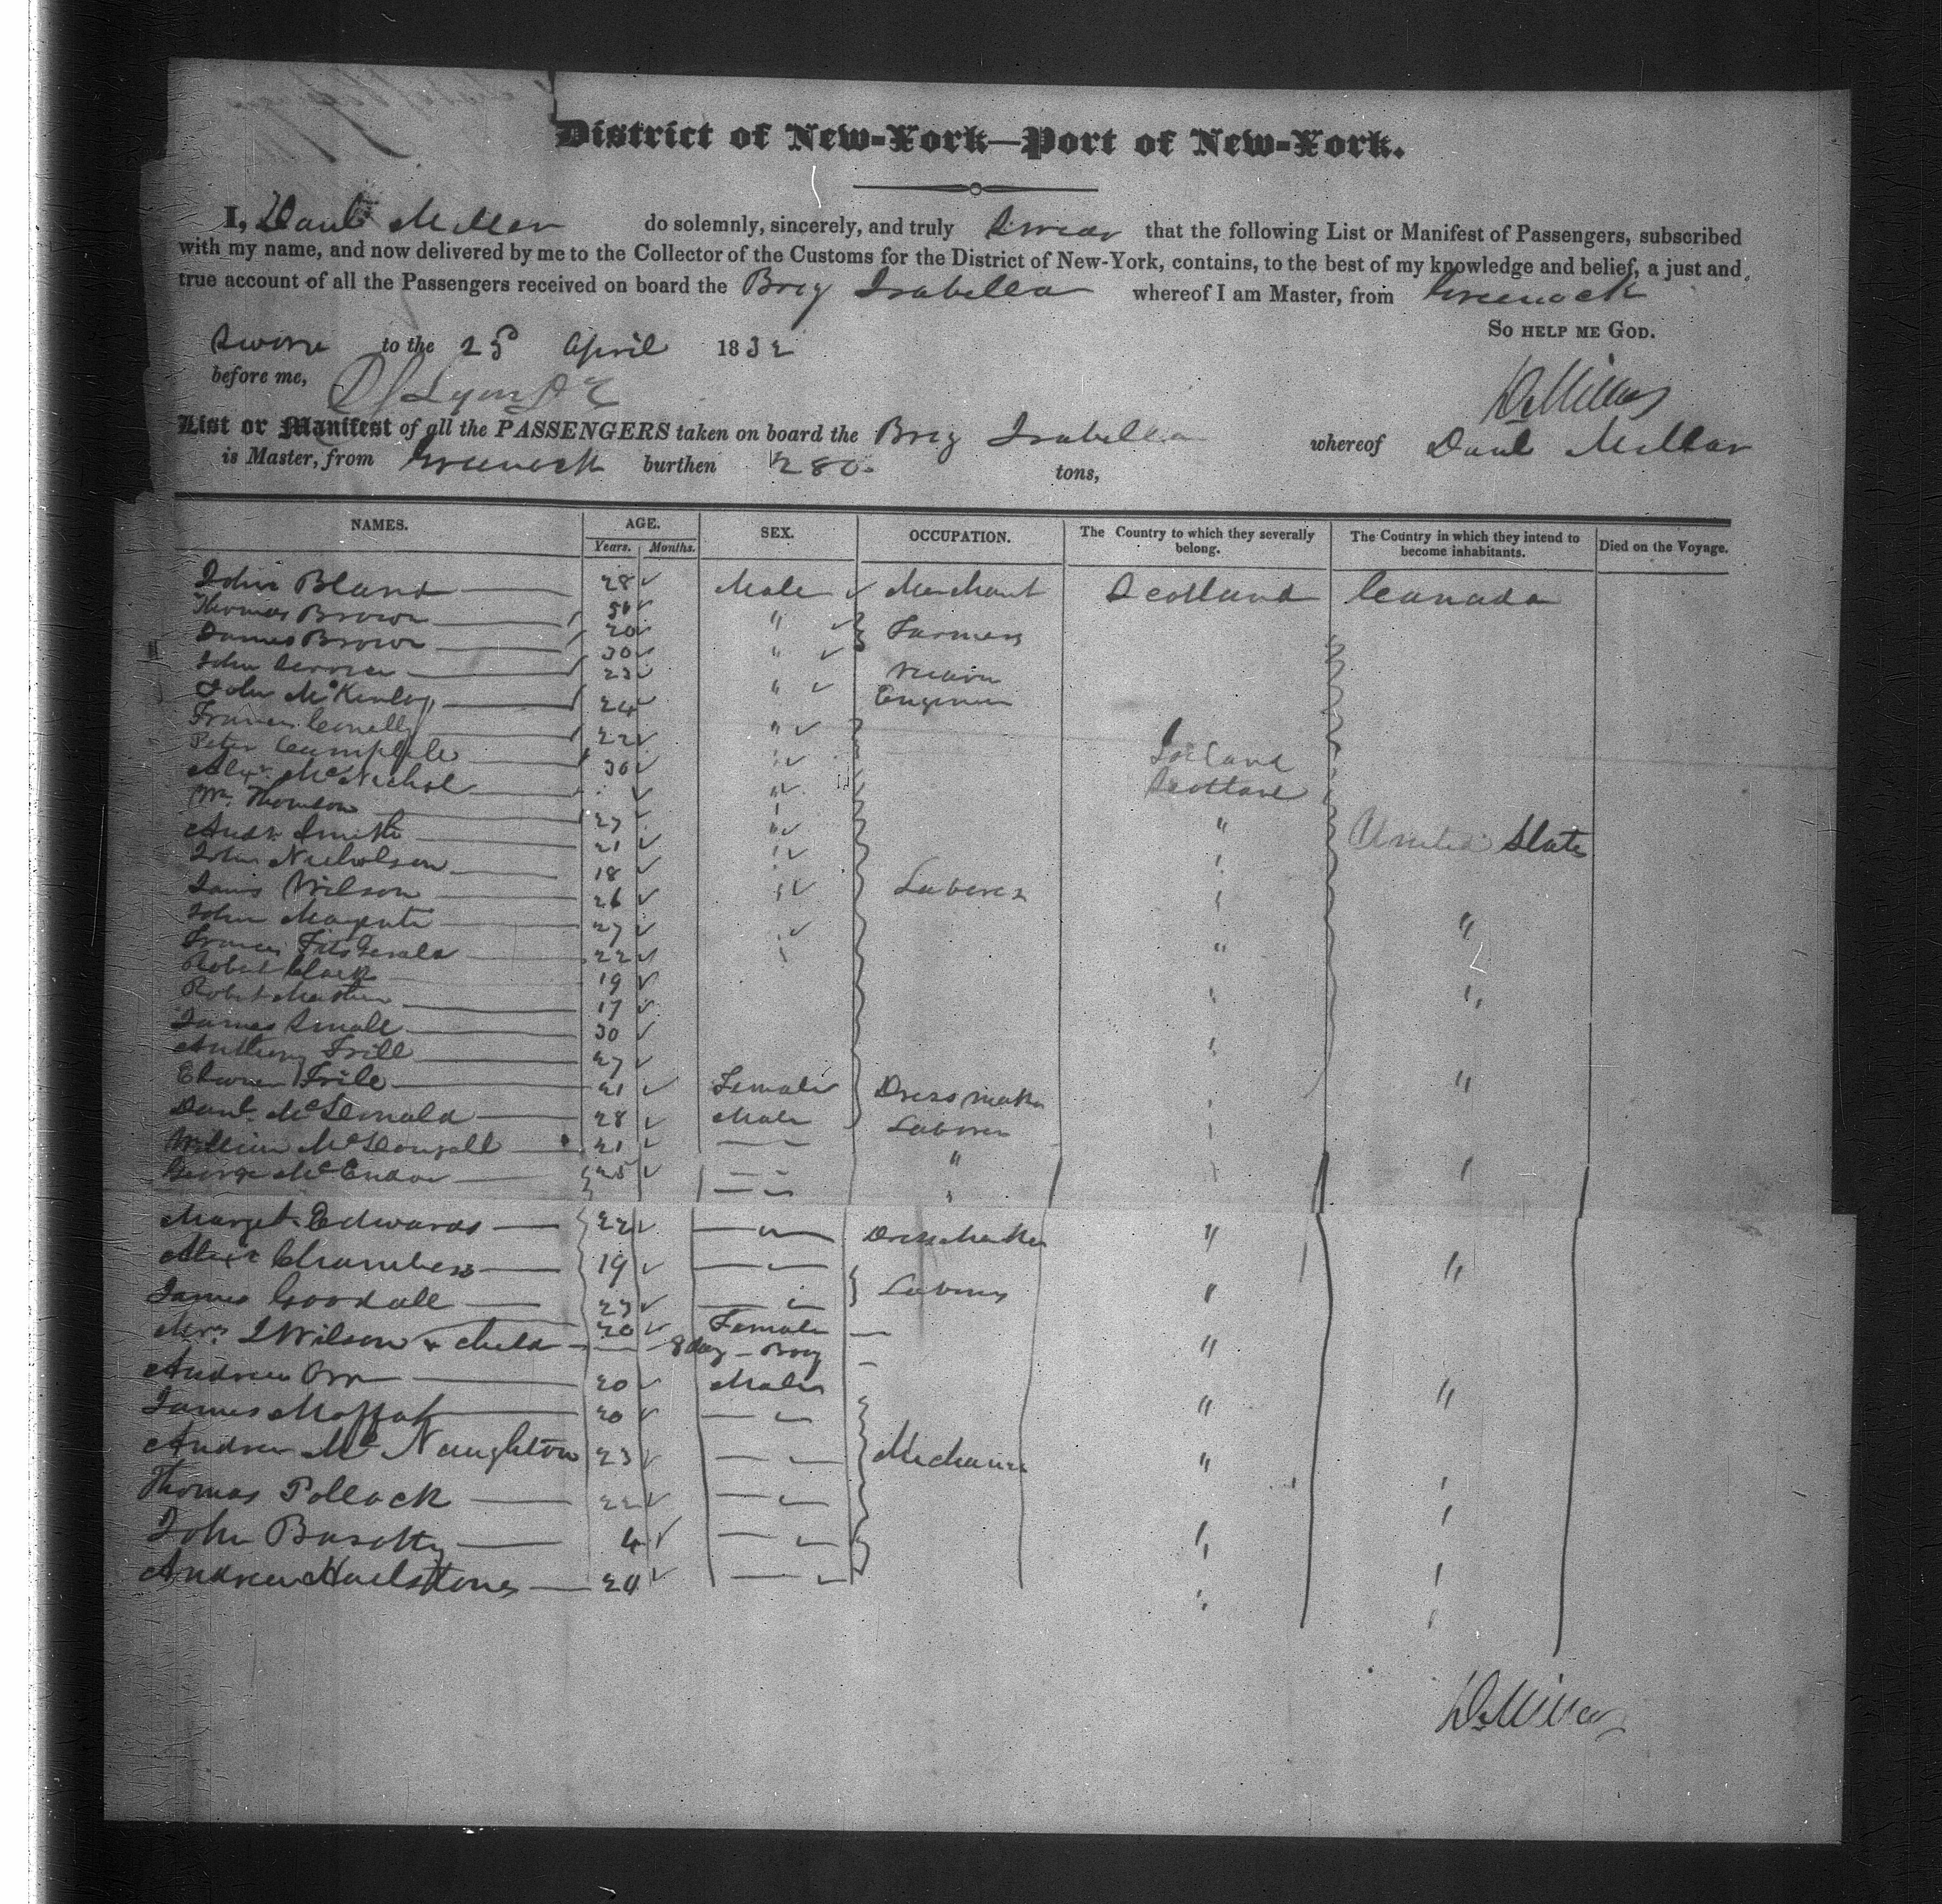 District of New-York—Port of New-York.
I, Danl Millar do solemnly, sincerely, and truly Swear that the following List or Manifest of Passengers, subscribed
with my name, and now delivered by me to the Collector of the Customs for the District of New-York, contains, to the best of my knowledge and belief, a just and
true account of all the Passengers received on board the Brig Isabella whereof I am Master, from Greenock
So help me God.
Sworn to the 25 April 1832
before me,
D Millar
List or Manifest of all the PASSENGERS taken on board the Brig Isabella whereof Danl Millar
is Master, from Greenock burthen 280 tons,
NAMES. AGE. SEX. OCCUPATION. The Country to which they severally belong. The Country in which they intend to become inhabitants. Died on the Voyage.
Years. Months.
John Bland 28 Male Merchant Scotland Canada
Thomas Brown 50 " Farmers
James Brown 20 "
John 30 "
John McKinlay 23 Engineer
Francis Conelly 24 " Ireland
Peter Campbele 22 " Scotland
Alexr McNichol 30 "
Wm Thomson " " United States
Andw Smith 27
John Nicholson 21
Janis Wilson 18 " Laborers
John 26 "
Francis FitzGerald 27 "
Robert Clark 22
Robert 19
James Small 17
Anthony Frill 30
Frile 27 Female Dress maker "
Danl McDonald 21 Male Laborer
William McDougall 28 "
George Mc 21 "
25
Margt Edwards 22 Dress Maker "
Alexr Chambers 19 "
James Goodall 23 Labourers "
Mrs J Wilson & child 20 Female
8 day - Boy "
Andrew Orr 20 Male "
James Moffat 20 "
Andrew McNaughton 23 Mechanics "
Thomas Pollock 22
John 4
Andrew Hailstones 24
D Millar